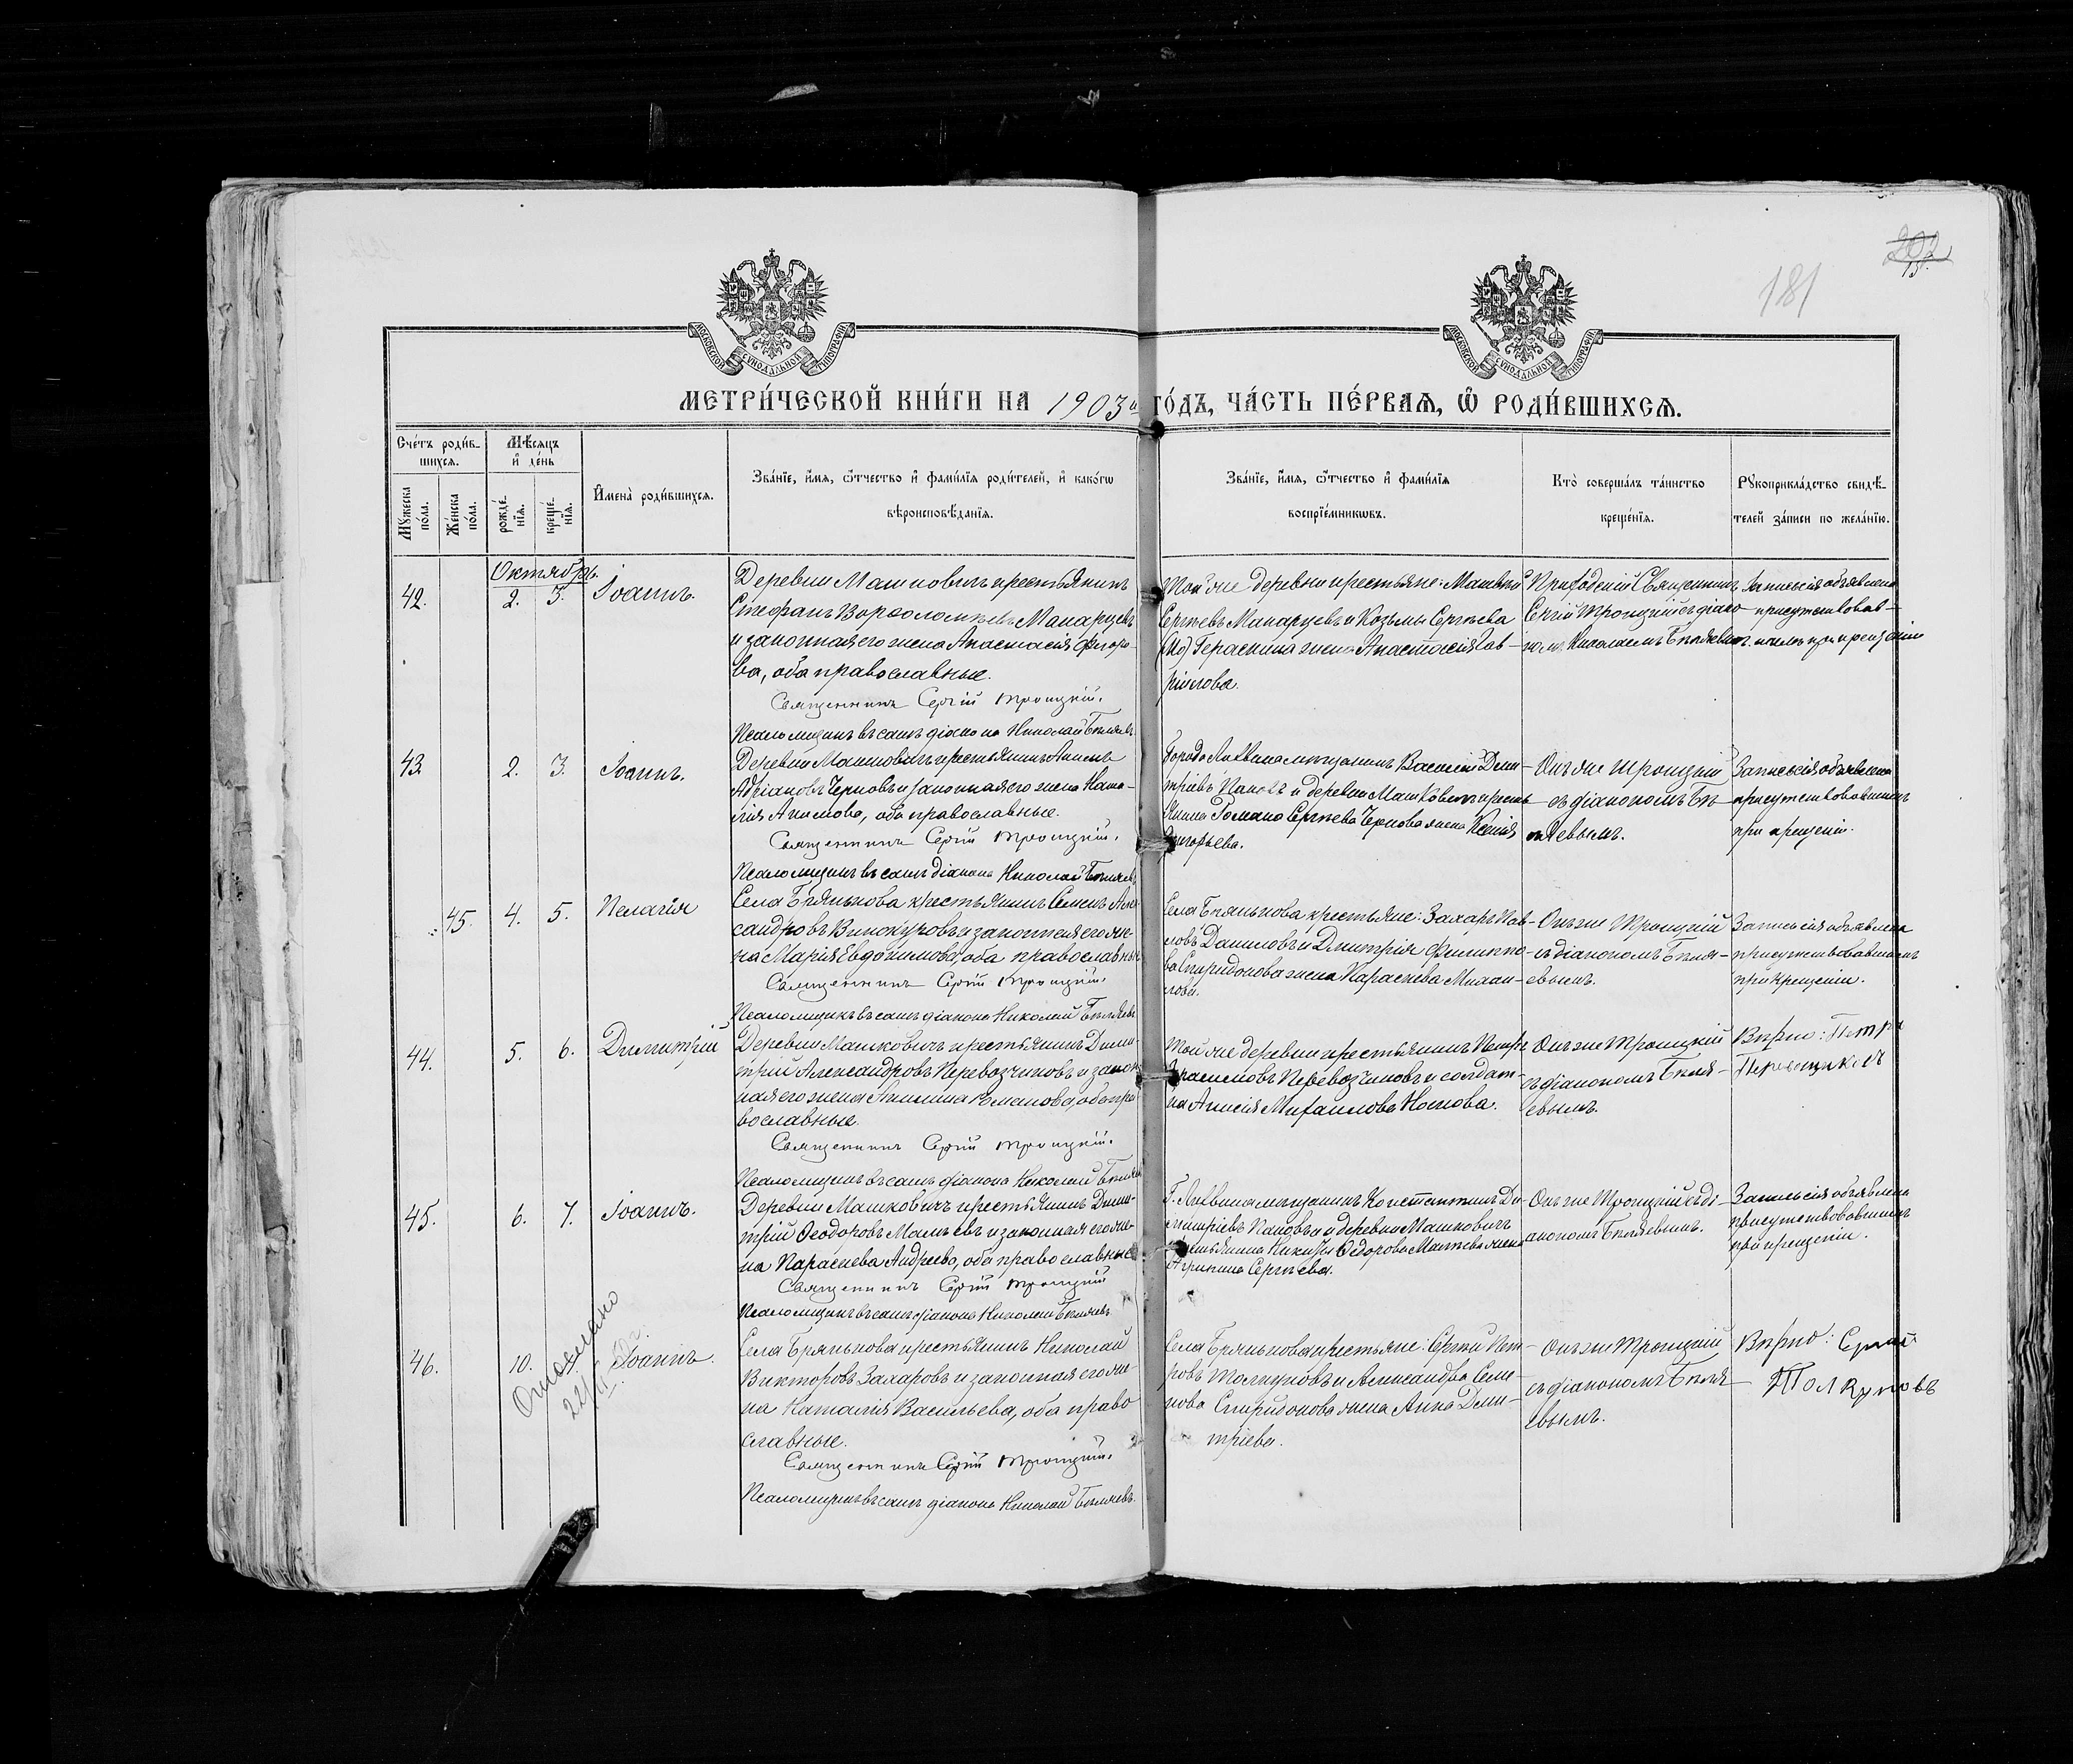 202
181
МОСКОВСКОЙ СѴНОДАЛЬНОЙ ТИПОГРАФІИ
МОСКОВСКОЙ СѴНОДАЛЬНОЙ ТИПОГРАФІИ
МЕТРИ́ЧЕСКОЙ КНИ́ГИ НА 1903й ГО́ДЪ, ЧА́СТЬ ПЕ́РВАЯ, Ѡ РОДИ́ВШИХСЯ.
Сче́тъ роди́в-
шихся.
Мꙋжеска по́ла.
Же́нска по́ла.
Мѣ́сяцъ
и де́нь
рожде́нїя.
креще́нїя.
Имена̀ роди́вшихся.
Зва́нїе, и́мя, ѻ́тчество и фами́лїя роди́телей, и како́гѡ
вѣроисповѣ́данїя.
Зва́нїе, и́мя, ѻ́тчество и фами́лїя
воспрїе́мникѡвъ.
Кто̀ соверша́лъ та́инство
креще́нїя.
Рꙋкоприкла́дство свидѣ́-
телей за́писи по жела́нїю.
Октябрь
42. 2. 3. Іоаннъ.
Деревни Машковичъ крестьянинъ
Стефанъ Варѳоломѣевъ Макарцевъ
и законная его жена Анастасія Ѳиоро-
ва, оба православные.
Священникъ Сергій Троицкій.
Псаломщикъ въ санѣ діакона Николай Бѣляевъ
Той же деревни крестьяне: Матвей
Сергѣевъ Макарцевъ и Козьмы Сергѣева
Гераскина жена Анастасія Гав-
рилова.
Приходскій Священникъ
Сергій Троицкій съ діако-
номъ Николаемъ Бѣляевымъ.
Запись сія объявлена
присутствовав-
шимъ при крещеніи
43 2. 3. Іоаннъ.
Деревни Машковичъ крестьянинъ Акимъ
Адріановъ Черновъ и законная его жена Ната-
лія Акимова, оба православные.
Священникъ Сергій Троицкій.
Псаломщикъ въ санѣ діакона Николай Бѣляевъ
Города Лихвина мѣщанинъ Василій Дми-
тріевъ Пановъ и деревни Машковичъ кресть-
янина Романа Сергѣева Чернова жена Ксенія
Григорьева.
Онъ же Троицкій
съ діакономъ Бѣ-
ляевымъ.
Запись сія объявлена
присутствовавшимъ
при крещеніи.
45. 4. 5. Пелагія
Села Брянькова крестьянинъ Семенъ Алек-
сандровъ Винокуровъ и законная его же-
на Марія Евдокимова, оба православные
Священникъ Сергій Троицкій.
Псаломщикъ въ санѣ діакона Николай Бѣляевъ
Села Брянькова крестьяне: Захаръ Пав-
ловъ Даниловъ и Дмитрія Филиппо-
ва Спиридонова жена Параскева Михаи-
лова.
Онъ же Троицкій
съ діакономъ Бѣля-
евымъ.
Запись сія объявлена
присутствовавшимъ
при крещеніи.
44. 5. 6. Димитрій
Деревни Машковичъ крестьянинъ Дими-
трій Александровъ Перевозчиковъ и закон-
ная его жена Акилина Романова, оба пра-
вославные.
Священникъ Сергій Троицкій.
Псаломщикъ въ санѣ діакона Николай Бѣляевъ
Той же деревни крестьянинъ Петръ
Герасимовъ Перевозчиковъ и солдат-
ка Анисія Михаилова Носкова.
Онъ же Троицкій
съ діакономъ Бѣля-
евымъ.
Вѣрно: Петръ
45. 6. 7. Іоаннъ.
Деревни Машковичъ крестьянинъ Дими-
трій Ѳеодоровъ Матѣевъ и законная его же-
на Параскева Андреева, оба православные
Священникъ Сергій Троицкій
Псаломщикъ въ санѣ діакона Николай Бѣляевъ
Г. Лихвина мѣщанинъ Константинъ Ди-
митріевъ Пановъ и деревни Машковичъ
крестьянина Никиты Ѳедорова Матѣева жена
Агрипина Сергѣева.
Онъ же Троицкій съ ді-
акономъ Бѣляевымъ.
Запись сія объявлена
присутствовавшимъ
при крещеніи.
46. 10. Іоаннъ.
Села Брянькова крестьянинъ Николай
Викторовъ Захаровъ и законная его же-
на Наталія Васильева, оба право-
славные.
Священникъ Сергій Троицкій.
Псаломщикъ въ санѣ діакона Николай Бѣляевъ.
Села Брянькова крестьяне: Сергѣй Пет-
ровъ Толкуновъ и Александра Семе-
нова Спиридонова жена Анна Дми-
тріева.
Онъ же Троицкій
съ діакономъ Бѣля-
евымъ.
Вѣрно: Сергѣй
Толкуновъ